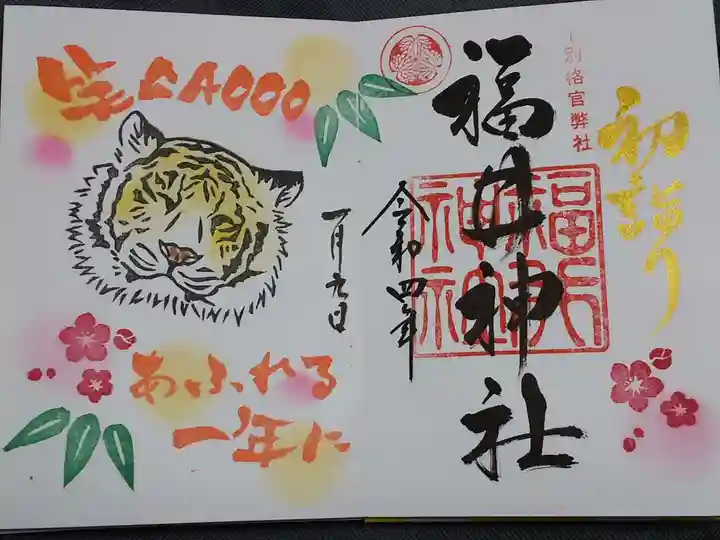 初詣り
別格官幣社
福井神社
福井神社
令和四年
一月九日
笑GAOOO
あふれる
一年に